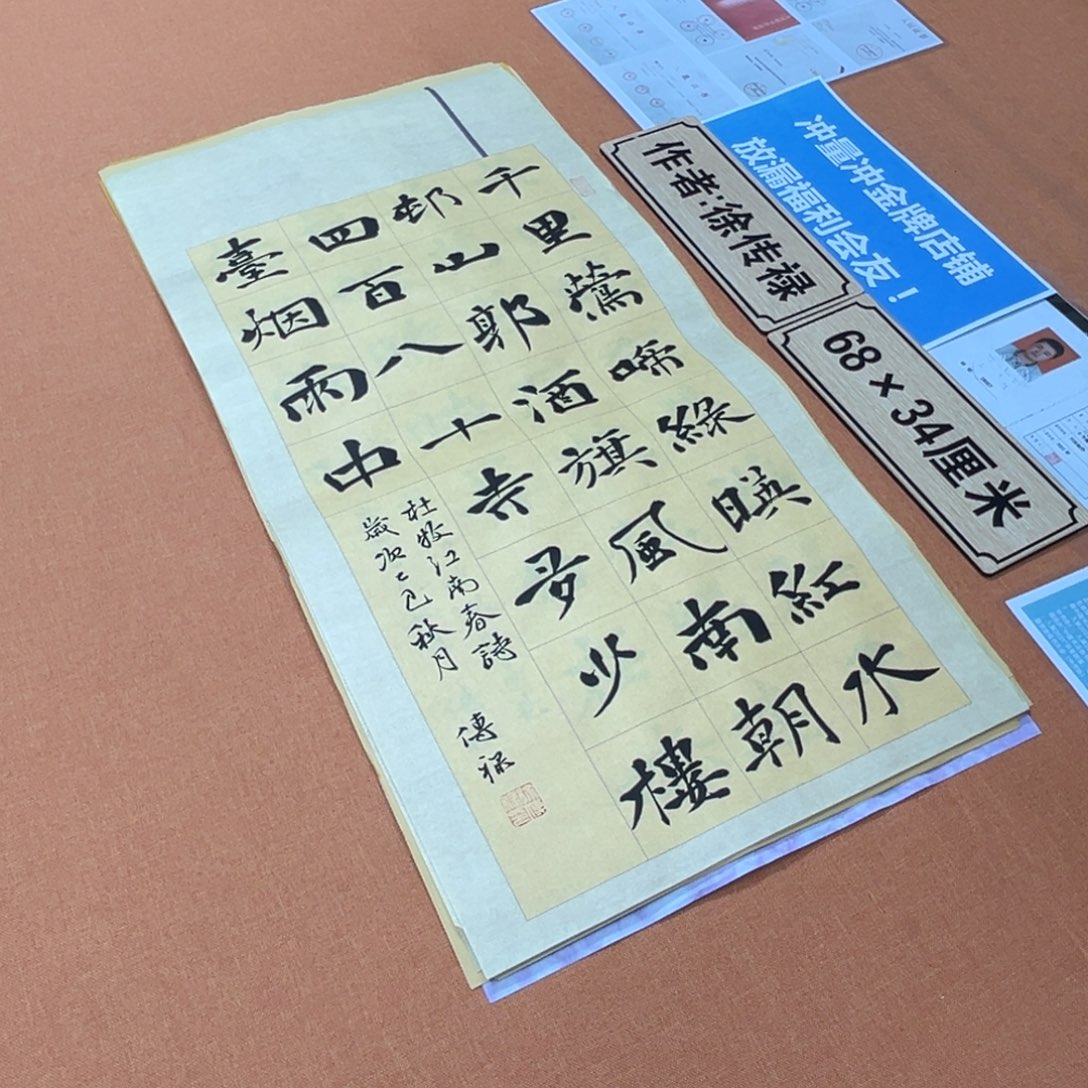 千里鶯啼綠暎紅水
邨山郭酒旗風南朝
四百八十寺多少樓
臺烟雨中
杜牧江南春詩
歲次乙巳秋月
傳禄
作者:徐传禄
68×34厘米
冲量冲金牌店铺
放漏福利会友！